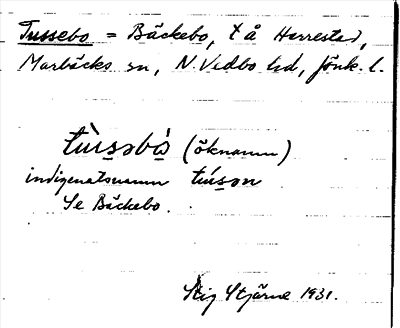 Tussebo = Bäckebo, t å Harrestad,
Marbäcks sn, N. Vedbo hd, Jönk. l.
tùsəbò (öknamn)
indigenatsnamn túsən
Se Bäckebo.
Stig Stjärne 1931.